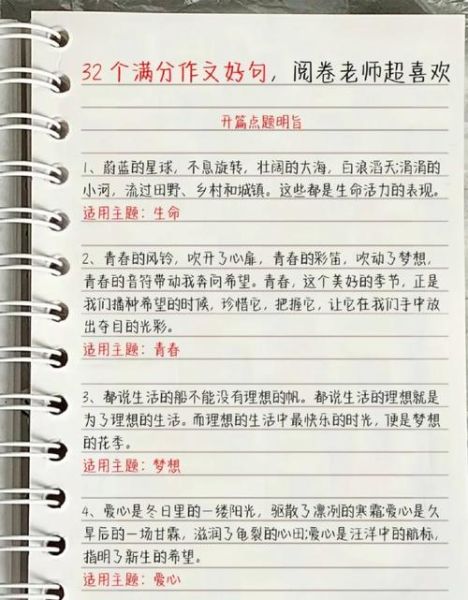 32个满分作文好句，阅卷老师超喜欢
开篇点题明旨
1、蔚蓝的星球，不息旋转，壮阔的大海，白浪滔天;涓涓的
小河，流过田野、乡村和城镇。这些都是生命活力的表现。
适用主题：生命
2、青春的风铃，吹开了心扉，青春的彩笛，吹动了梦想，
青春的音符带动我奔向希望。青春，这个美好的季节，正是
我们播种希望的时候，珍惜它，把握它，让它在我们手中放
出夺目的光彩。
适用主题：青春
3、都说生活的船不能没有理想的帆。都说生活的理想就是
为了理想的生活。而理想的生活中最快乐的时光，便是梦想
的花季。
适用主题：梦想
4、爱心是冬日里的一缕阳光，驱散了凛冽的寒霜;爱心是久
旱后的一场甘霖，滋润了龟裂的心田;爱心是汪洋中的航标，
指明了新生的希望。
适用主题：爱心